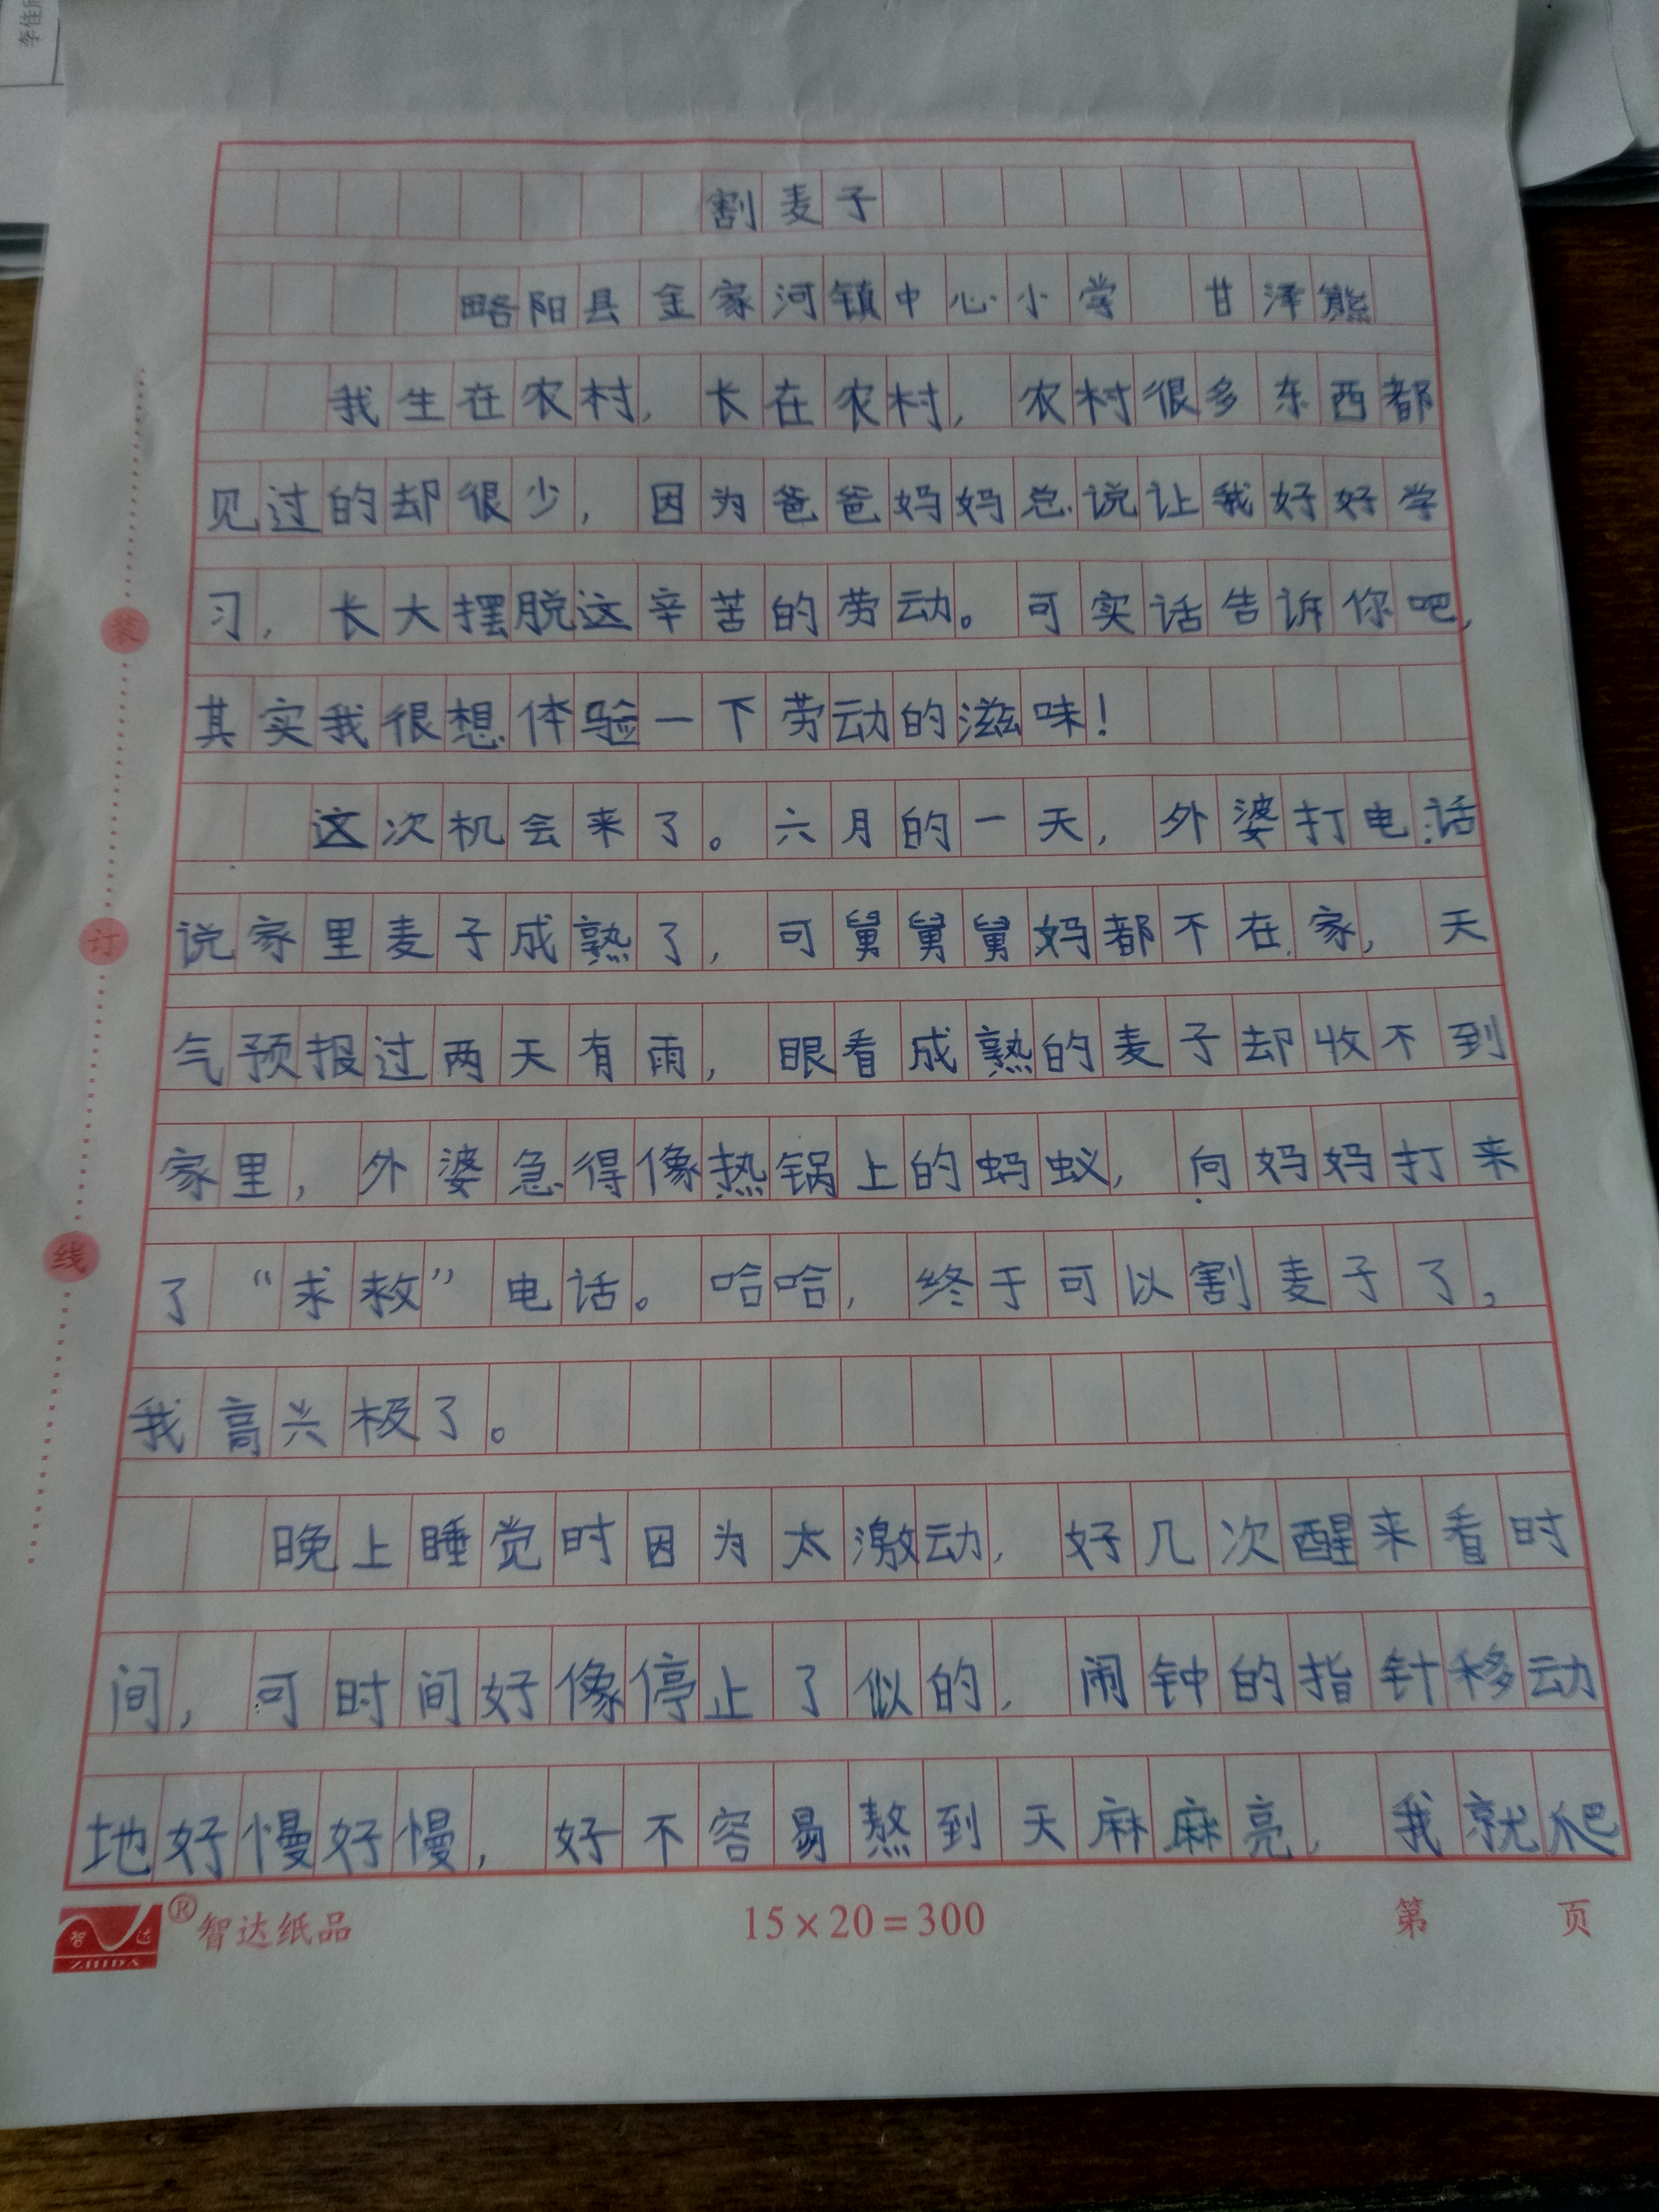 割麦子
略阳县金家河镇中心小学 甘泽熊
我生在农村,长在农村,农村很多东西都
见过的却很少,因为爸爸妈妈总说让我好好学
习,长大摆脱这辛苦的劳动。可实话告诉你吧,
其实我很想体验一下劳动的滋味!
这次机会来了。六月的一天,外婆打电话
说家里麦子成熟了,可舅舅舅妈都不在家,天
气预报过两天有雨,眼看成熟的麦子却收不到
家里,外婆急得像热锅上的蚂蚁,向妈妈打来
了“求救”电话。哈哈,终于可以割麦子了,
我高兴极了。
晚上睡觉时因为太激动,好几次醒来看时
间,可时间好像停止了似的,闹钟的指针移动
地好慢好慢,好不容易熬到天麻麻亮,我就爬
装
订
线
智达
ZHIDA
®智达纸品
15×20=300
第 页